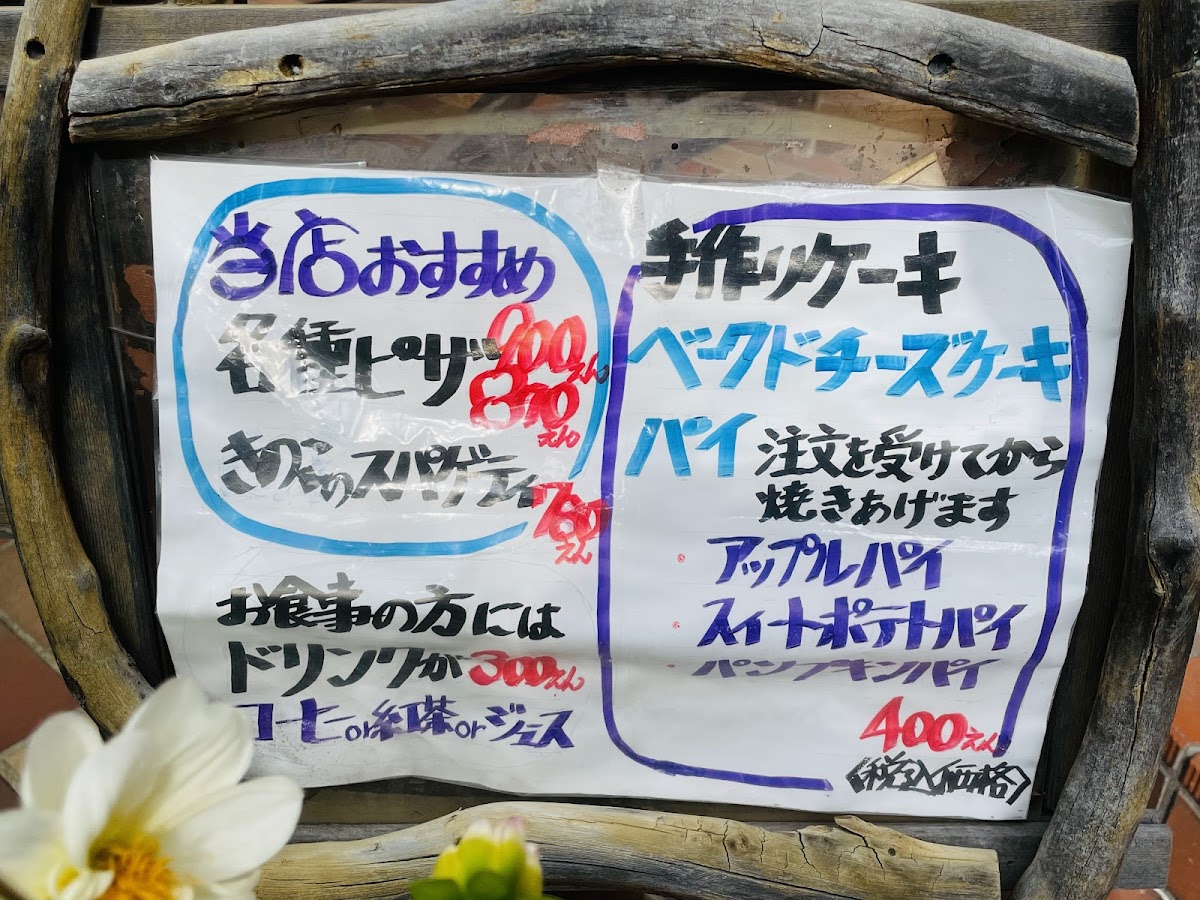 当店おすすめ
各種ピザ 900えん
870えん
きのこのスパゲティ 760えん
お食事の方には
ドリンクが300えん
コーヒーor紅茶orジュース
手作りケーキ
ベークドチーズケーキ
パイ 注文を受けてから
焼きあげます
・アップルパイ
・スイートポテトパイ
・パンプキンパイ
400えん
(税込価格)